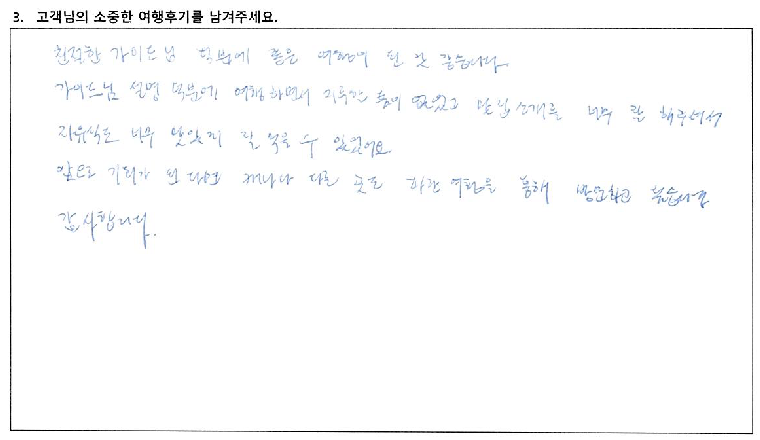 3. 고객님의 소중한 여행후기를 남겨주세요.
친절한 가이드님 덕분에 좋은 여행이 된 것 같습니다.
가이드님 설명 덕분에 여행하면서 지루한 틈이 없었고 맛집소개를 너무 잘 해주셔서
자유식도 너무 맛있게 잘 먹을 수 있었어요.
앞으로 기회가 된다면 다른 곳도 하나 여행을 통해 방문하고 싶습니다
감사합니다.